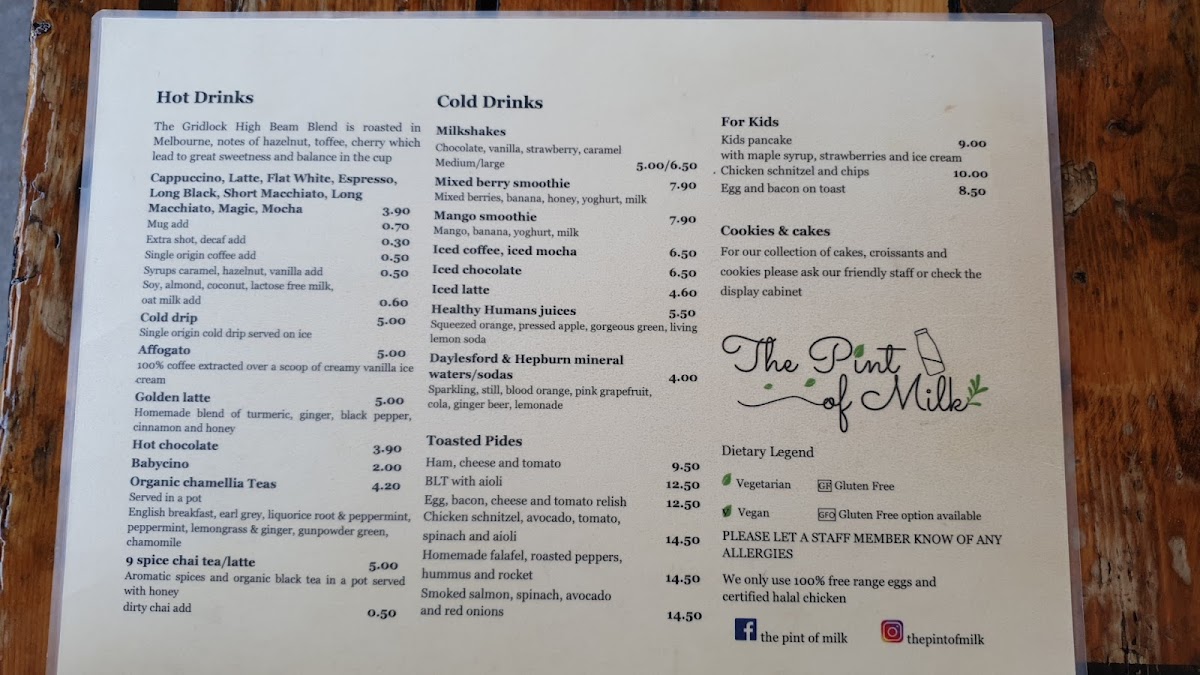 Hot Drinks
The Gridlock High Beam Blend is roasted in
Melbourne, notes of hazelnut, toffee, cherry which
lead to great sweetness and balance in the cup
Cappuccino, Latte, Flat White, Espresso,
Long Black, Short Macchiato, Long
Macchiato, Magic, Mocha 3.90
Mug add 0.70
Extra shot, decaf add 0.30
Single origin coffee add 0.50
Syrups caramel, hazelnut, vanilla add 0.50
Soy, almond, coconut, lactose free milk,
oat milk add 0.60
Cold drip 5.00
Single origin cold drip served on ice
Affogato 5.00
100% coffee extracted over a scoop of creamy vanilla ice
cream
Golden latte 5.00
Homemade blend of turmeric, ginger, black pepper,
cinnamon and honey
Hot chocolate 3.90
Babycino 2.00
Organic chamellia Teas 4.20
Served in a pot
English breakfast, earl grey, liquorice root & peppermint,
peppermint, lemongrass & ginger, gunpowder green,
chamomile
9 spice chai tea/latte 5.00
Aromatic spices and organic black tea in a pot served
with honey
dirty chai add 0.50
Cold Drinks
Milkshakes
Chocolate, vanilla, strawberry, caramel
Medium/large 5.00/6.50
Mixed berry smoothie 7.90
Mixed berries, banana, honey, yoghurt, milk
Mango smoothie 7.90
Mango, banana, yoghurt, milk
Iced coffee, iced mocha 6.50
Iced chocolate 6.50
Iced latte 4.60
Healthy Humans juices 5.50
Squeezed orange, pressed apple, gorgeous green, living
lemon soda
Daylesford & Hepburn mineral
waters/sodas 4.00
Sparkling, still, blood orange, pink grapefruit,
cola, ginger beer, lemonade
Toasted Pides
Ham, cheese and tomato 9.50
BLT with aioli 12.50
Egg, bacon, cheese and tomato relish 12.50
Chicken schnitzel, avocado, tomato,
spinach and aioli 14.50
Homemade falafel, roasted peppers,
hummus and rocket 14.50
Smoked salmon, spinach, avocado
and red onions 14.50
For Kids
Kids pancake 9.00
with maple syrup, strawberries and ice cream
Chicken schnitzel and chips 10.00
Egg and bacon on toast 8.50
Cookies & cakes
For our collection of cakes, croissants and
cookies please ask our friendly staff or check the
display cabinet
The Pint
of Milk
Dietary Legend
Vegetarian GF Gluten Free
Vegan GFO Gluten Free option available
PLEASE LET A STAFF MEMBER KNOW OF ANY
ALLERGIES
We only use 100% free range eggs and
certified halal chicken
the pint of milk thepintofmilk